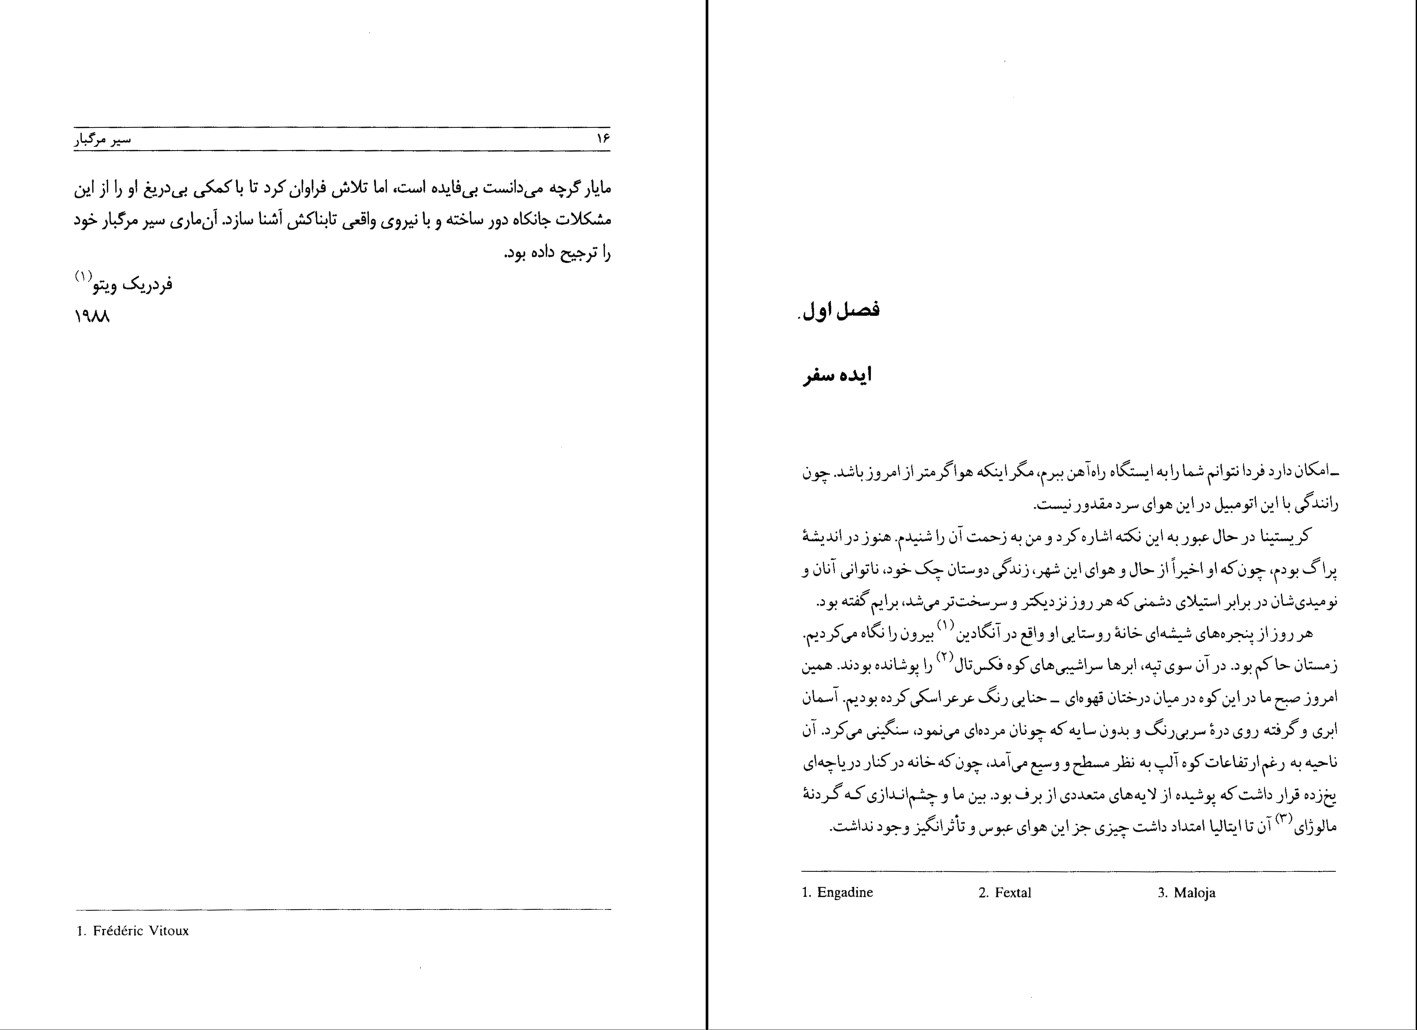 ۱۶
سیر مرگبار
مایار گرچه می‌دانست بی‌فایده است، اما تلاش فراوان کرد تا با کمکی بی‌دریغ او را از این
مشکلات جانکاه دور ساخته و با نیروی واقعی تابناکش آشنا سازد. آن‌ماری سیر مرگبار خود
را ترجیح داده بود.
فردریک ویتو(۱)
۱۹۸۸
1. Frédéric Vitoux
فصل اول
ایده سفر
ـ امکان دارد فردا نتوانم شما را به ایستگاه راه‌آهن ببرم، مگر اینکه هوا گرمتر از امروز باشد. چون
رانندگی با این اتومبیل در این هوای سرد مقدور نیست.
کریستینا در حال عبور به این نکته اشاره کرد و من به زحمت آن را شنیدم. هنوز در اندیشهٔ
پراگ بودم، چون‌که او اخیراً از حال و هوای این شهر، زندگی دوستان چک خود، ناتوانی آنان و
نومیدی‌شان در برابر استیلای دشمنی که هر روز نزدیکتر و سرسخت‌تر می‌شد، برایم گفته بود.
هر روز از پنجره‌های شیشه‌ای خانهٔ روستایی او واقع در آنگادین(۱) بیرون را نگاه می‌کردیم.
زمستان حاکم بود. در آن سوی تپه، ابرها سراشیبی‌های کوه فکس‌تال(۲) را پوشانده بودند. همین
امروز صبح ما در این کوه در میان درختان قهوه‌ای ـ حنایی رنگ عرعر اسکی کرده بودیم. آسمان
ابری و گرفته روی درهٔ سربی‌رنگ و بدون سایه که چونان مرده‌ای می‌نمود، سنگینی می‌کرد. آن
ناحیه به رغم ارتفاعات کوه آلپ به نظر مسطح و وسیع می‌آمد، چون‌که خانه در کنار دریاچه‌ای
یخ‌زده قرار داشت که پوشیده از لایه‌های متعددی از برف بود. بین ما و چشم‌اندازی کـه گـردنهٔ
مالوژای(۳) آن تا ایتالیا امتداد داشت چیزی جز این هوای عبوس و تأثرانگیز وجود نداشت.
1. Engadine 2. Fextal 3. Maloja